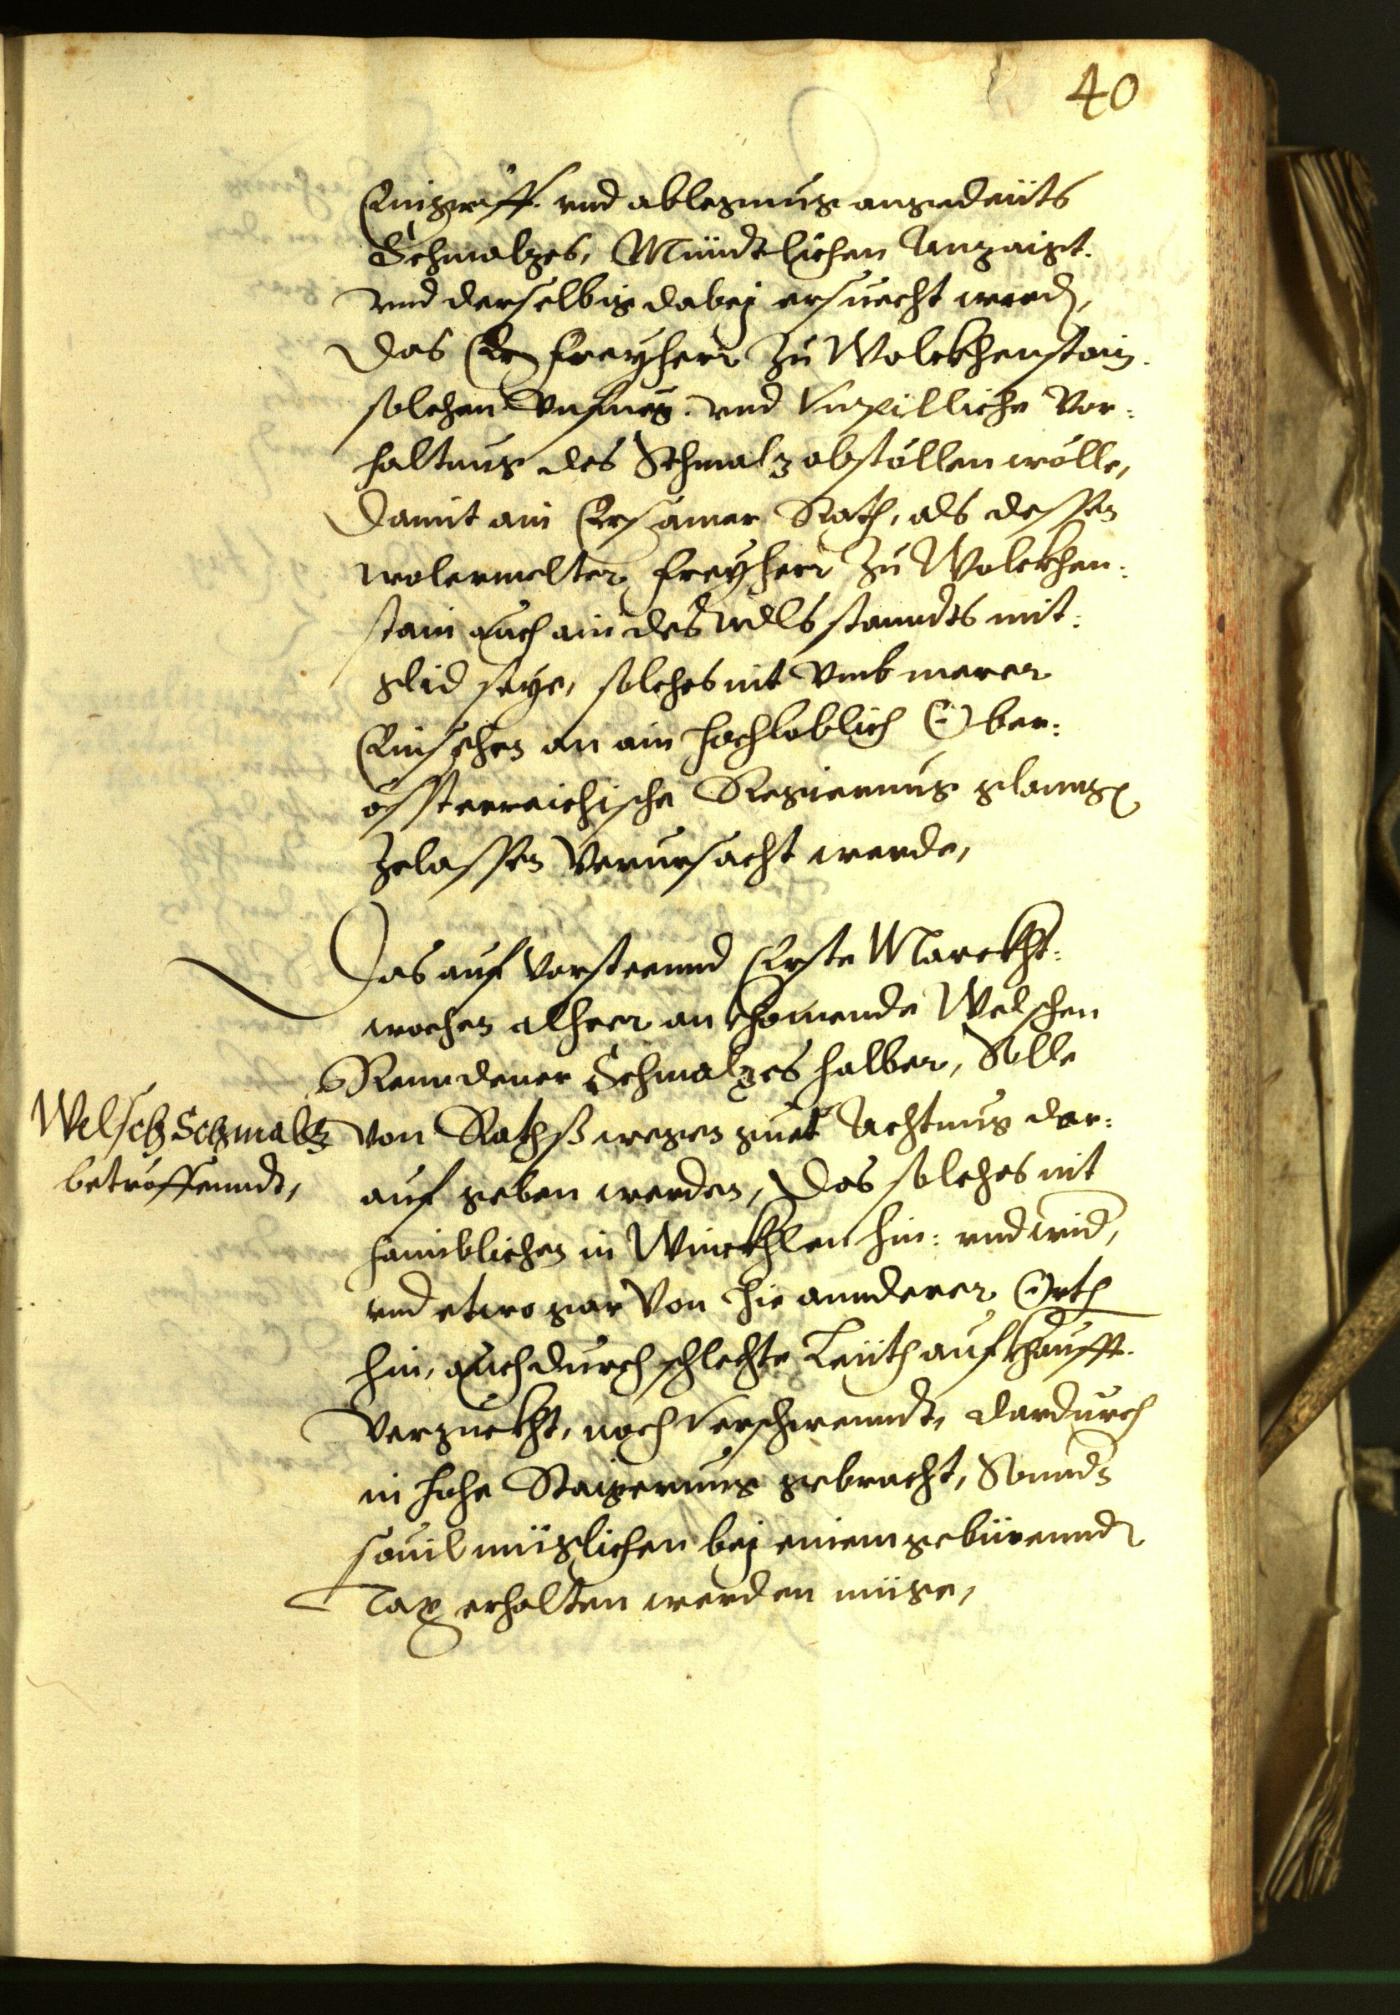 40
Eingriff. vnd ablegnung angedeüts
Schmalzes, Mündtlichen Anzaigt.
vnd derselbig dabej ersuecht werd,
das Er Freyherr zu Wolckhenstain.
solchen vnfueg. vnd vnpilliche Vor-
haltung des Schmalz abstöllen wölle,
damit ain Ersamer Rath, als dessen
wolermelter Freyherr zu Wolckhen-
stain auch ain des Adls stanndts mit-
glid seye, solches nit vmb merer
Einsehen an ain hochloblich Ober-
össterreichische Regierung glanngen
zelassen verursacht werde,
Das auf vorsteennd Erste Marckht-
wochen alheer ankhomende Welschen
Renndener Schmalzes halber, Solle
Welsch Schmalz
betröffenndt,
von Rathß wegen guet Achtung dar-
auf geben werden, Das solches nit
haimblichen in Winckhlen hin: vnd wid,
vnd etwo gar von hie annderer Orth
hin, auch durch schlechte Leüth aufkhaufft.
verzuckht, noch verschwenndt, dardurch
in hohe Staigerung gebracht, Sonnder
souil müglichen bej einem gebürennd
Tax erhalten werden müge,